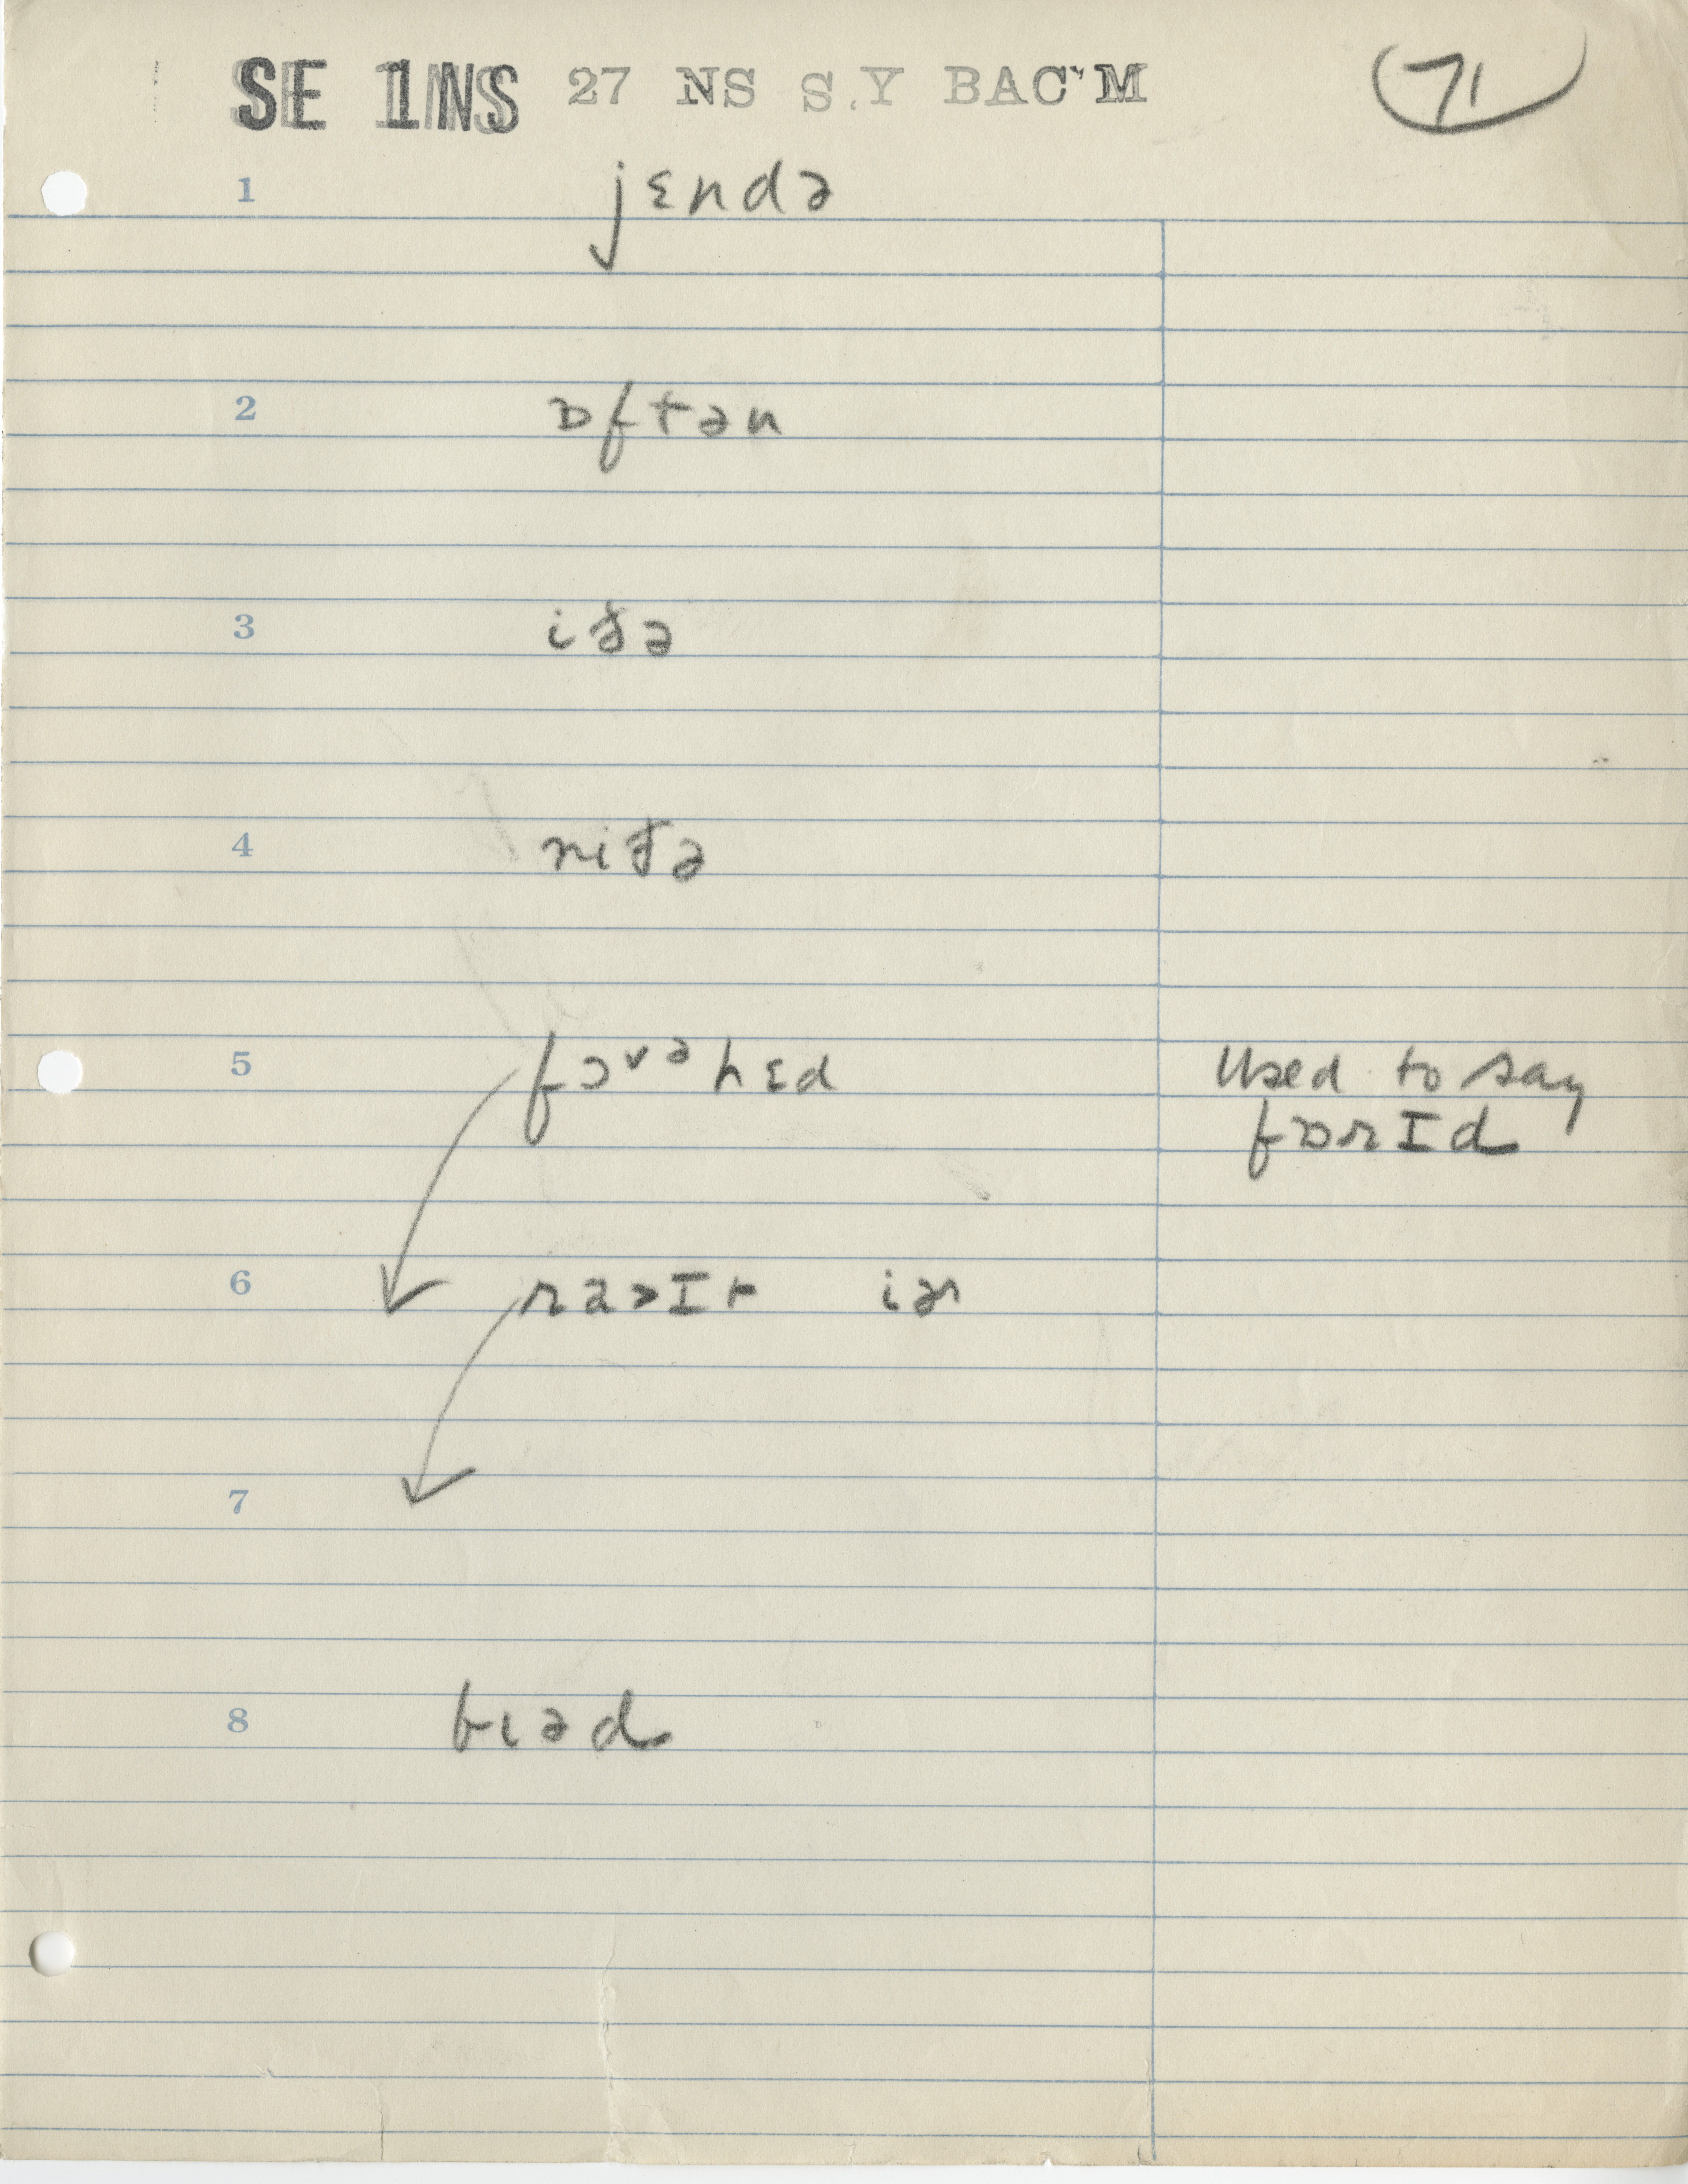 SE 1NS 27 NS S.Y BAC'M 71
1 jɛndə
2 ɒftən
3 iðə
4 niðə
5 fɔvəhɛd Used to say
fɒrId
6
7
8